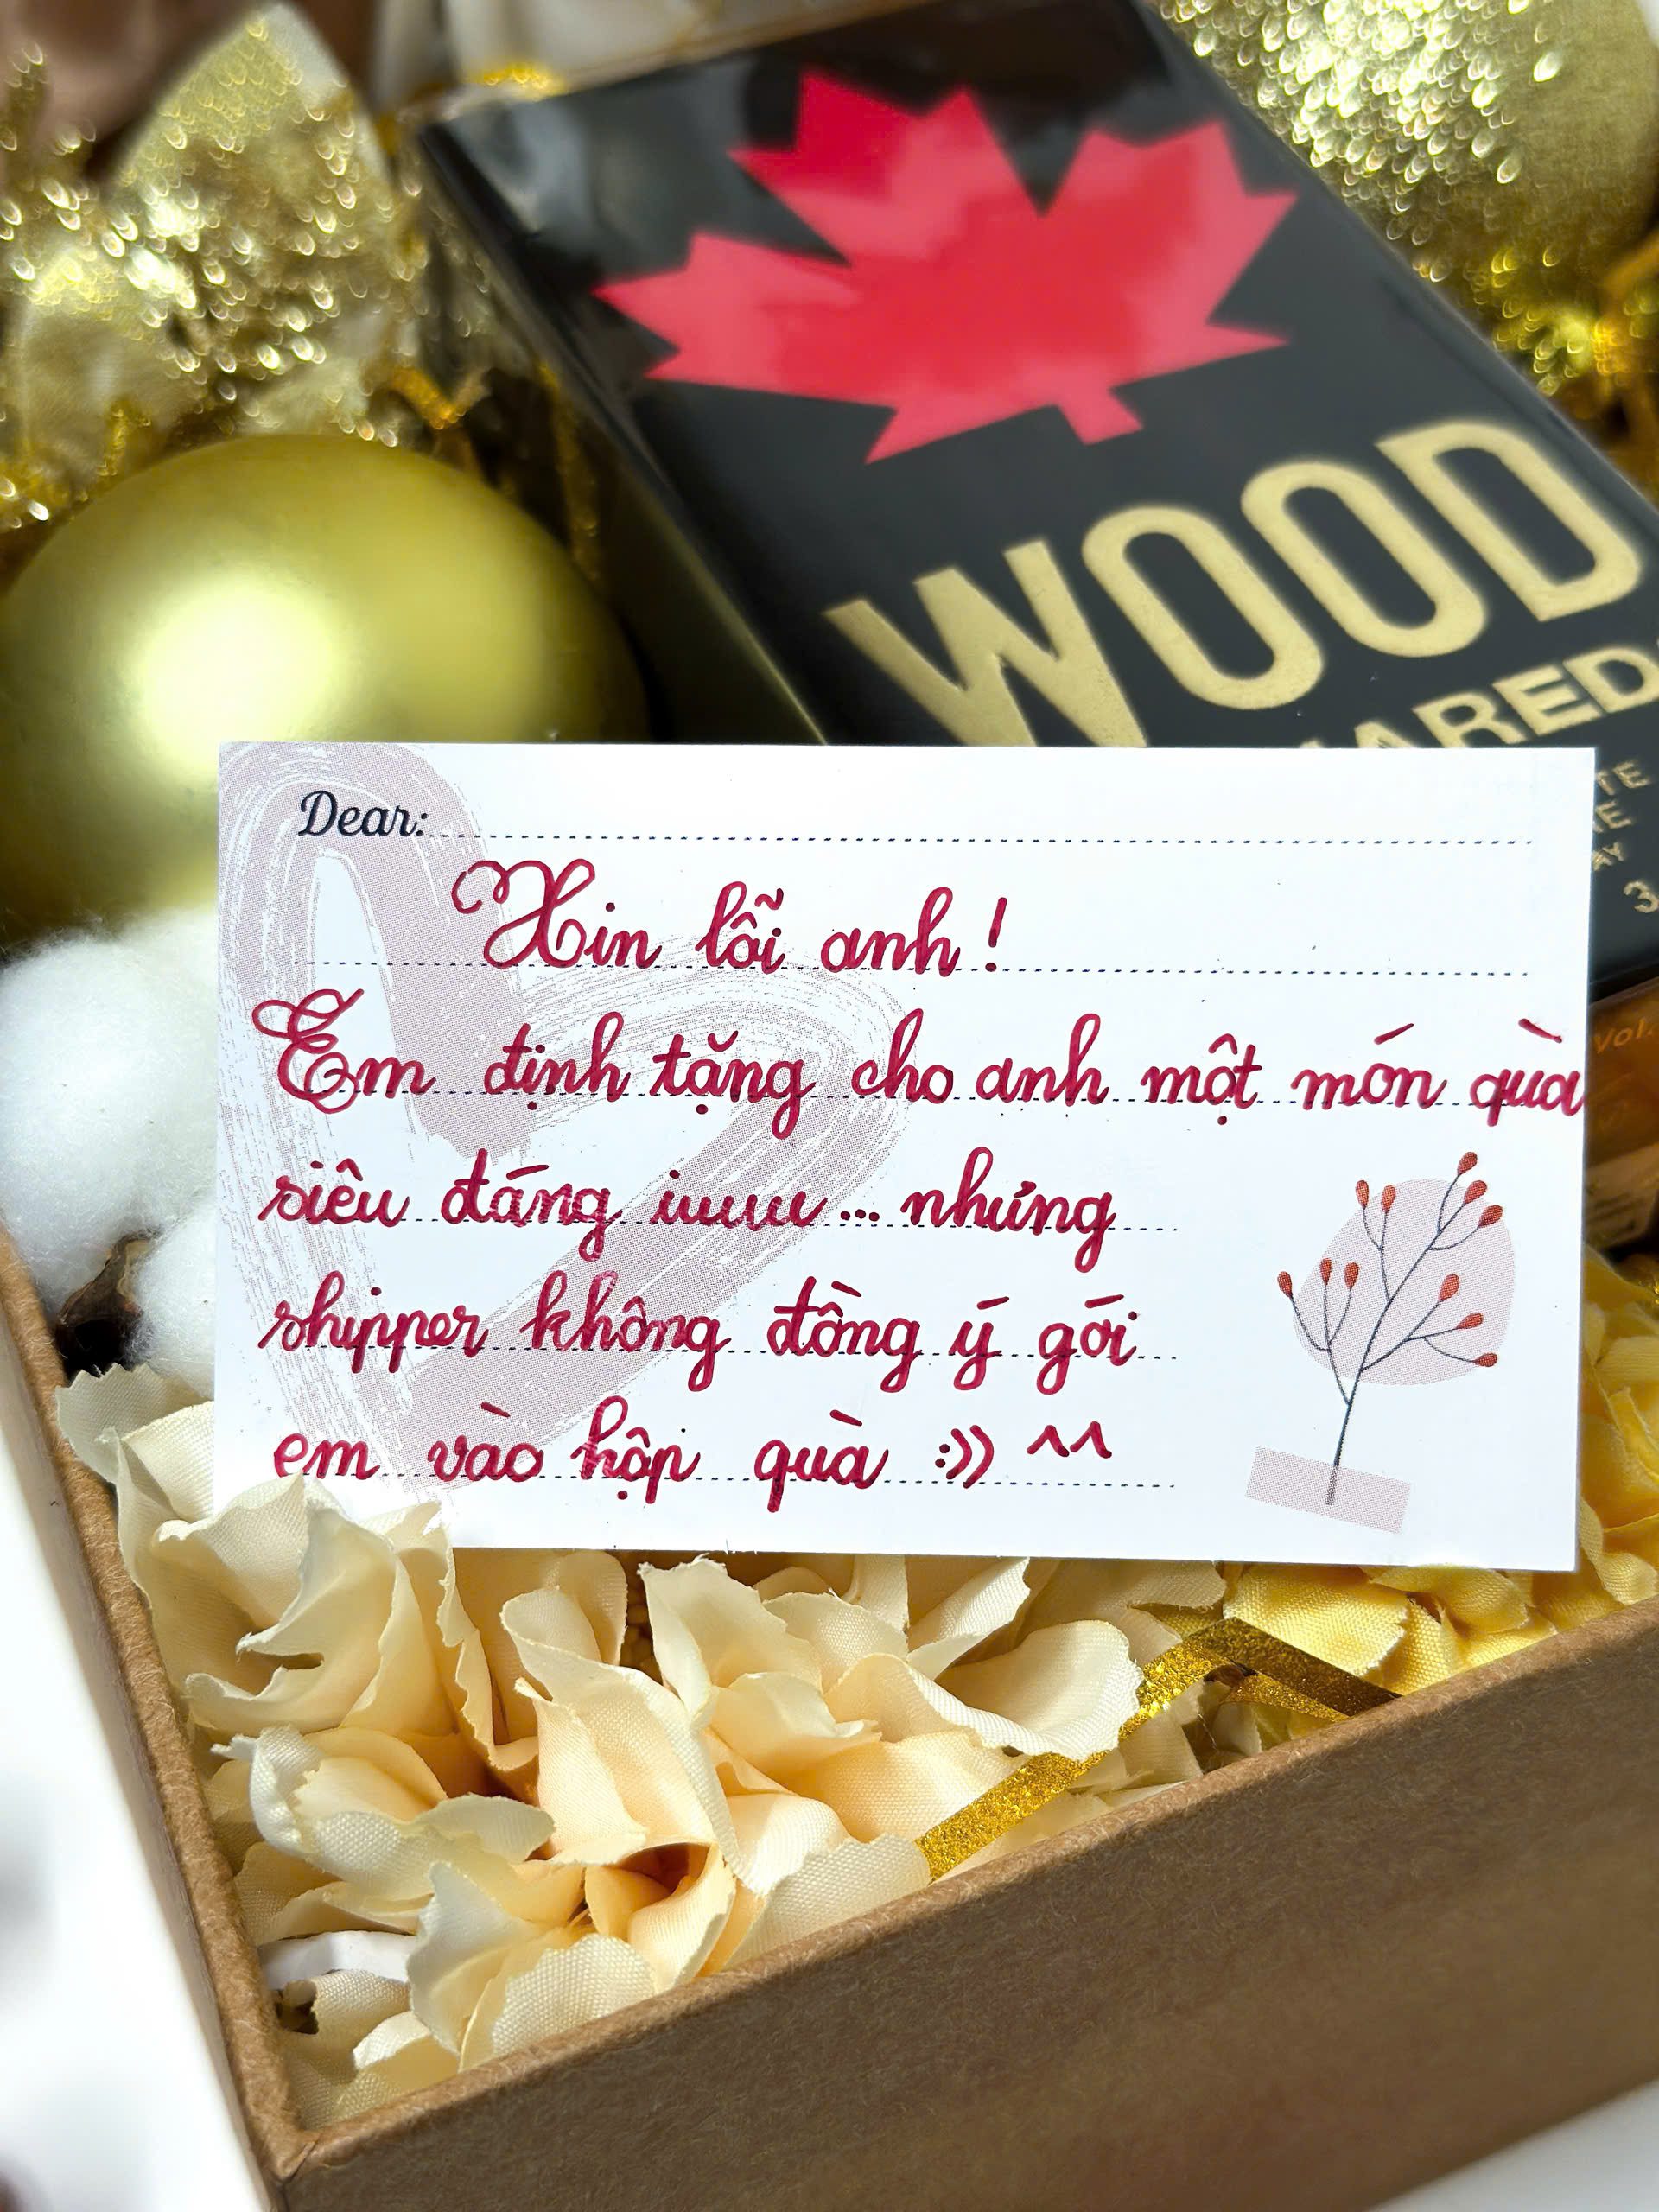 WOOD
3
Vol.
Dear:
Xin lỗi anh !
Em định tặng cho anh một món quà
siêu đáng iuuuu ... nhưng
shipper không đồng ý gói
em vào hộp quà :)) ^^